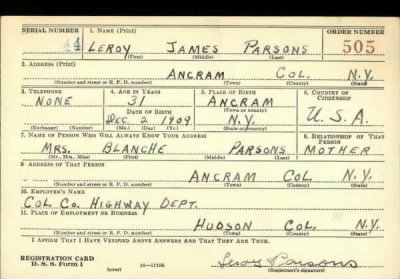 SERIAL NUMBER 1. NAME (Print) ORDER NUMBER
44 LEROY JAMES PARSONS 505
(First) (Middle) (Last)
2. ADDRESS (Print)
ANCRAM COL. N.Y.
(Number and street or R. F. D. number) (Town) (County) (State)
3. TELEPHONE 4. AGE IN YEARS 5. PLACE OF BIRTH 6. COUNTRY OF CITIZENSHIP
NONE 31 ANCRAM
DATE OF BIRTH (Town or county)
DEC. 2 1909 N.Y. U.S.A.
(Exchange) (Number) (Mo.) (Day) (Yr.) (State or country)
7. NAME OF PERSON WHO WILL ALWAYS KNOW YOUR ADDRESS 8. RELATIONSHIP OF THAT PERSON
MRS. BLANCHE PARSONS MOTHER
(Mr., Mrs., Miss) (First) (Middle) (Last)
9. ADDRESS OF THAT PERSON
ANCRAM COL. N.Y.
(Number and street or R. F. D. number) (Town) (County) (State)
10. EMPLOYER'S NAME
COL. CO. HIGHWAY DEPT.
11. PLACE OF EMPLOYMENT OR BUSINESS
HUDSON COL. N.Y.
(Number and street or R. F. D. number) (Town) (County) (State)
I AFFIRM THAT I HAVE VERIFIED ABOVE ANSWERS AND THAT THEY ARE TRUE.
REGISTRATION CARD
D. S. S. Form 1 (over) 16—17105 Leroy Parsons
(Registrant's signature)